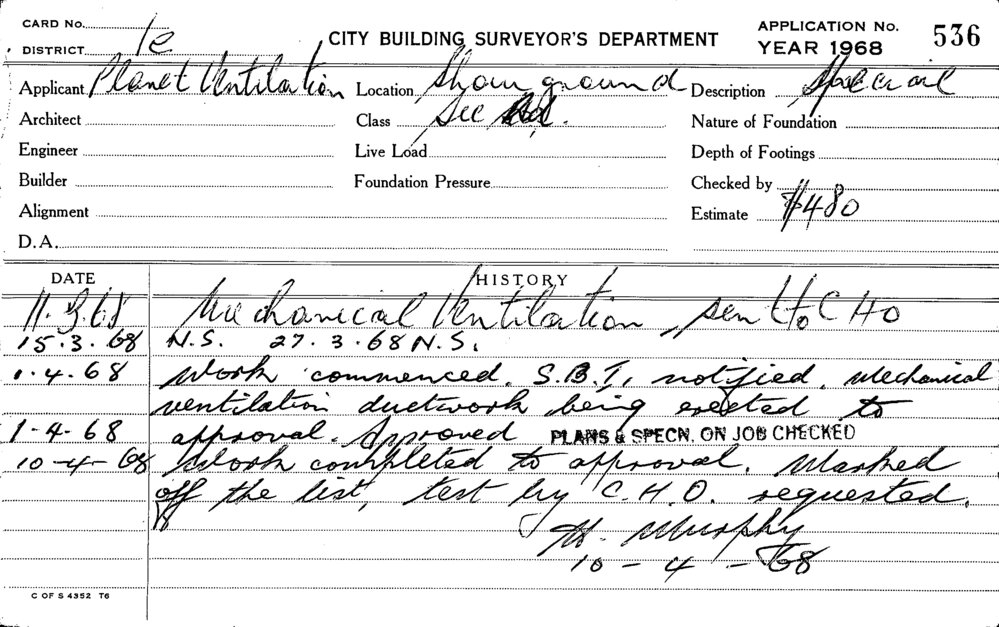 CARD No.
DISTRICT 1e
CITY BUILDING SURVEYOR'S DEPARTMENT
APPLICATION No. 536
YEAR 1968
Applicant Planet Ventilation Location Showground Description Special
Architect Class See Nature of Foundation
Engineer Live Load Depth of Footings
Builder Foundation Pressure Checked by
Alignment Estimate $480
D.A.
DATE HISTORY
11.3.68 Mechanical Ventilation sent to CHO
15.3.68 N.S. 27.3.68 N.S.
1.4.68 Work commenced. S.B.I. notified. Mechanical
ventilation ductwork being erected to
1-4-68 approval. Approved PLANS & SPECN. ON JOB CHECKED
10-4-68 Work completed to approval. Marked
off the list, test by C.H.O. requested.
Murphy
10-4-68
C OF S 4352 T6